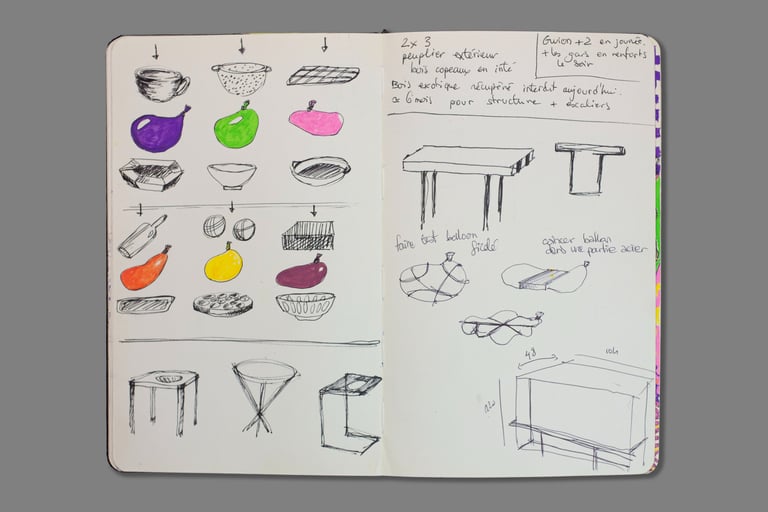 2x3
peuplier extérieur
bois copeaux en inté
Bois exotique récupéré interdit aujourd'hui.
6 mois pour structure + escaliers
Gwion +2 en journée.
+ les gars en renforts
le soir
faire tout balloon
ficelé
coincer ballon
dans une partie acier
48
104